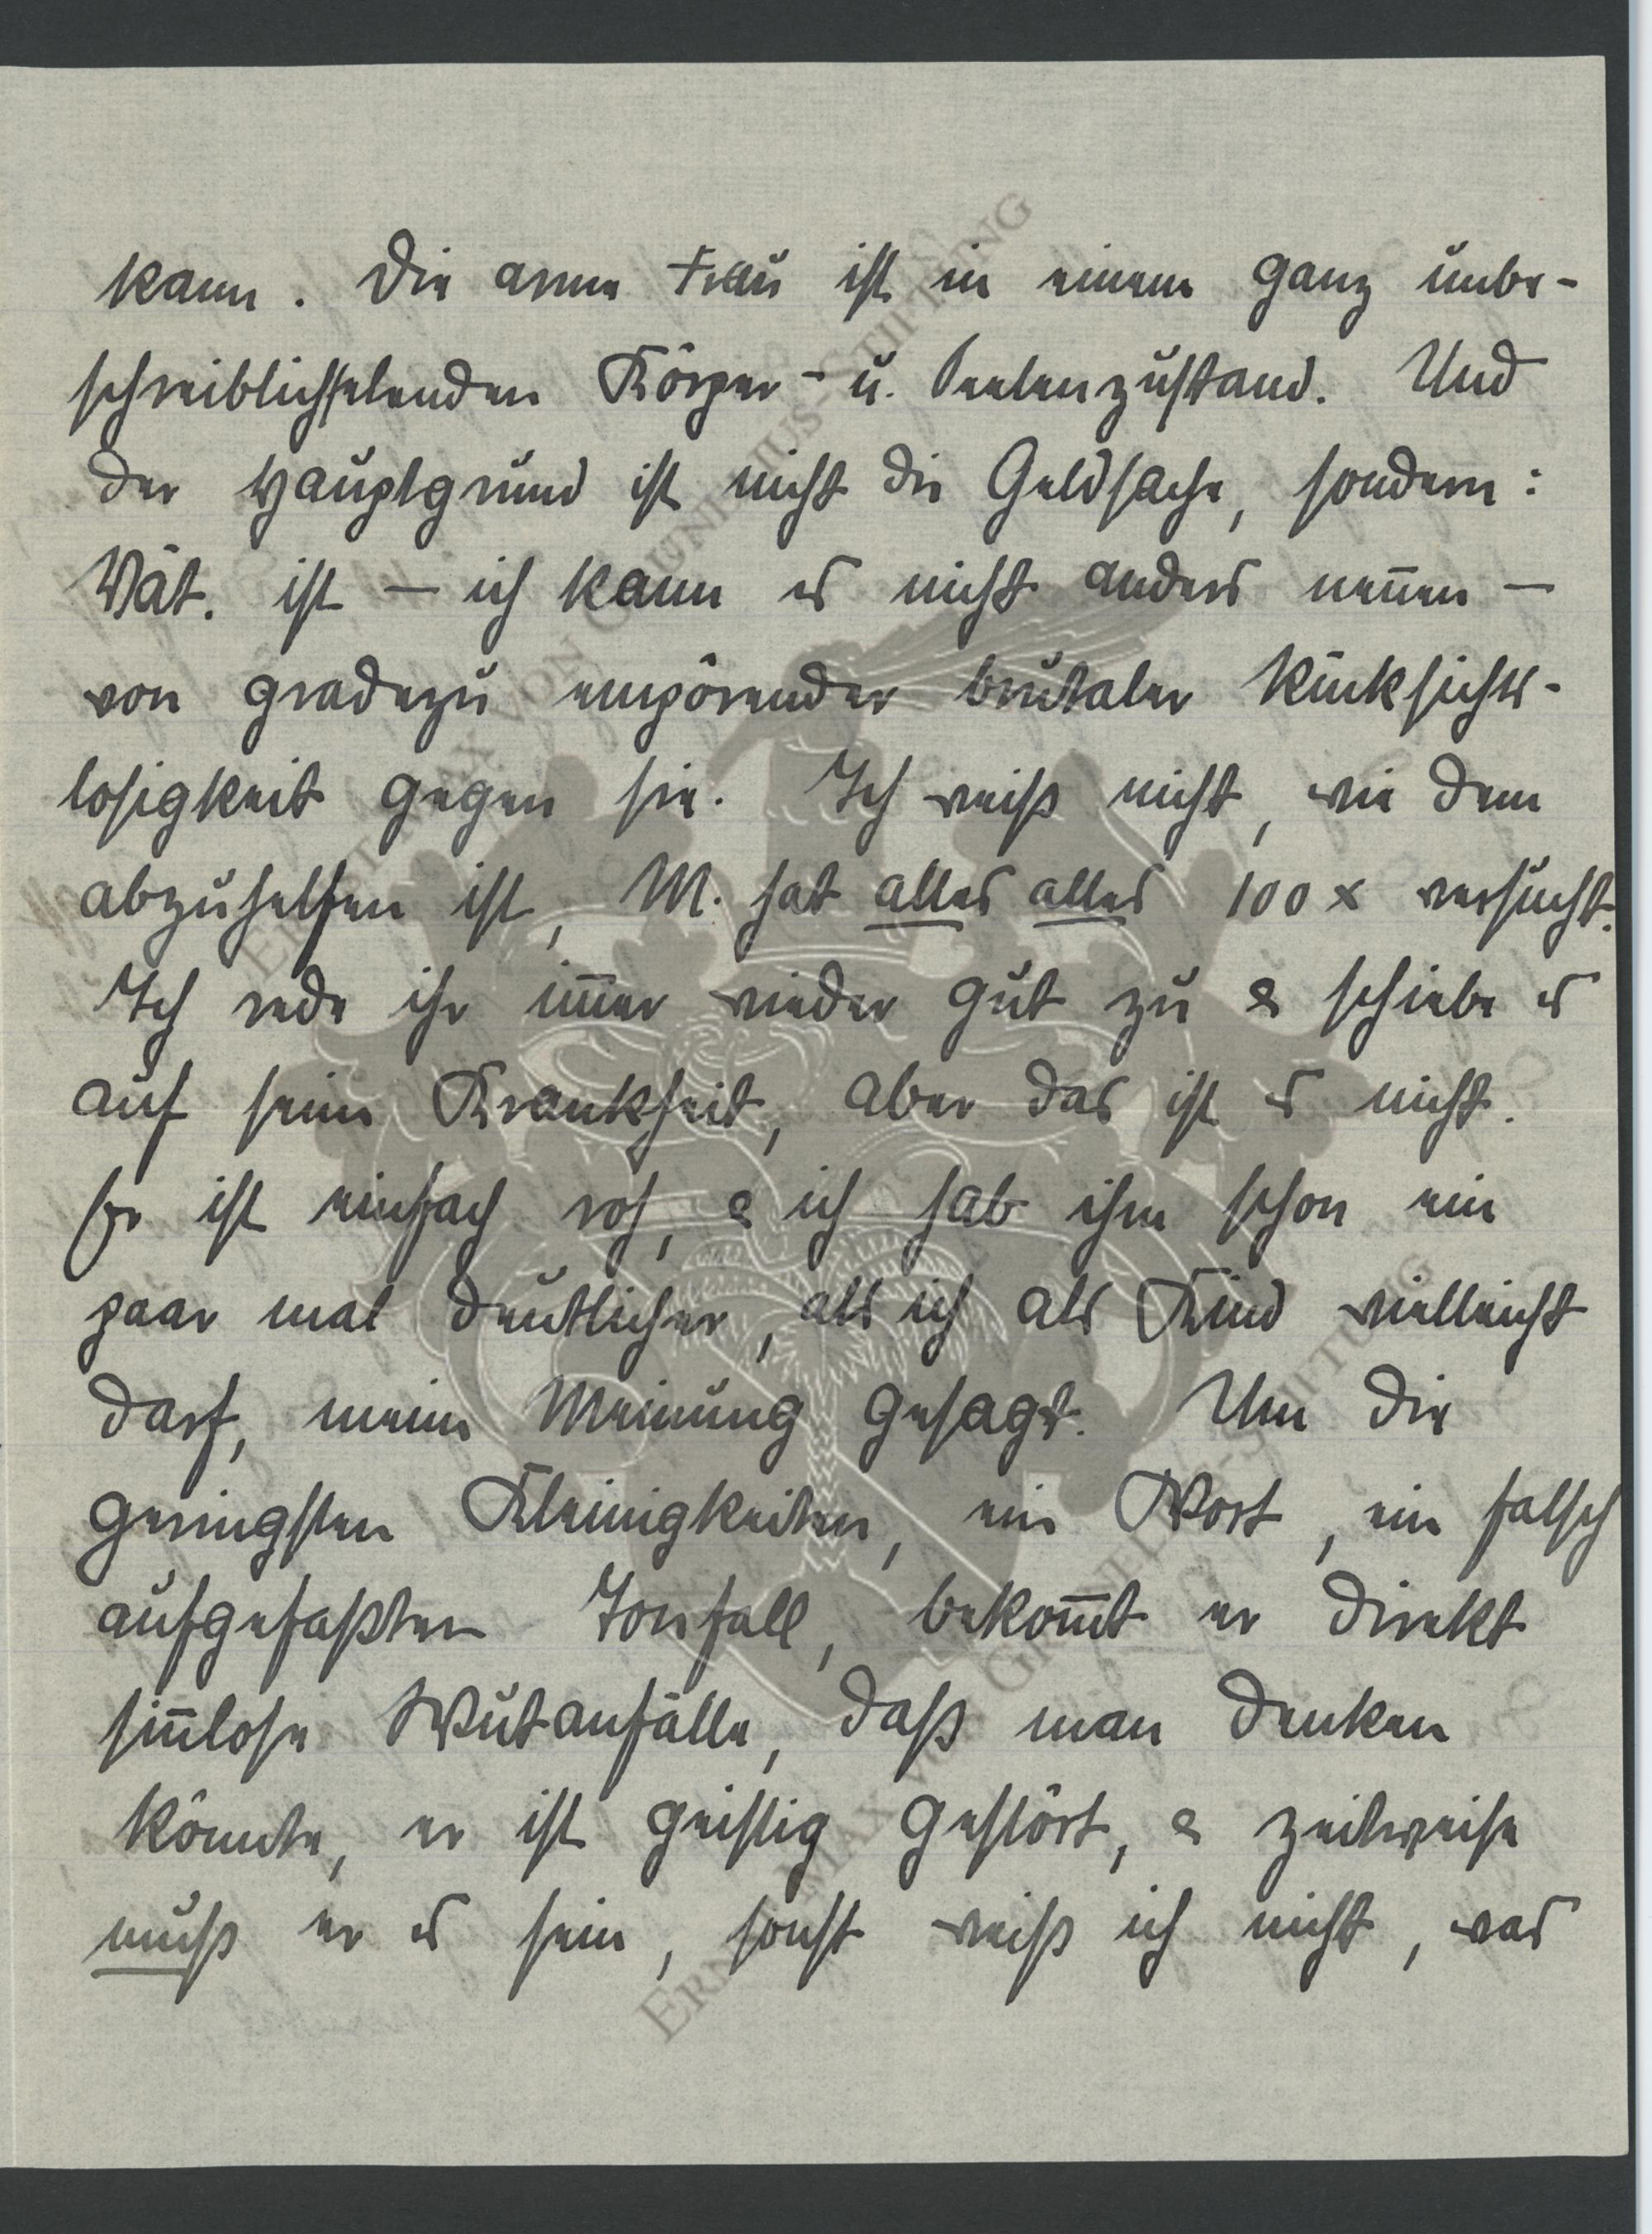 kann. Die arme Frau ist in einem ganz unbe-
schreiblich elenden Körper- u. Seelenzustand. Und
der Hauptgrund ist nicht die Geldsache, sondern:
Vät. ist – ich kann es nicht anders nen̄en –
von gradezu empörender brutaler Rücksichts-
losigkeit gegen sie. Ich weiß nicht, wie dem
abzuhelfen ist, M. hat alles alles 100 x versucht.
Ich rede ihr im̄er wieder gut zu & schiebe es
auf seine Krankheit, aber das ist es nicht.
Er ist einfach roh, & ich hab ihm schon ein
paar mal deutlicher, als ich als Kind vielleicht
darf, meine Meinung gesagt. Um die
geringsten Kleinigkeiten, ein Wort, ein falsch
aufgefaßter Tonfall, bekom̄t er direkt
sin̄lose Wutanfälle, daß man denken
könnte, er ist geistig gestört, & zeitweise
muß er es sein, sonst weiß ich nicht, was
ERNST MAX VON GRUNELIUS-STIFTUNG
ERNST MAX VON GRUNELIUS-STIFTUNG